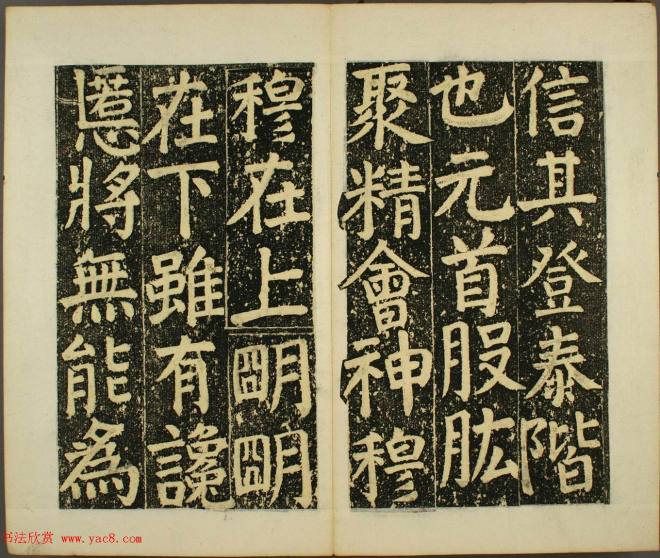 信其登泰階
也元首股肱
聚精會神穆
穆在上明明
在下雖有讒
慝將無能為
书法欣赏 www.yac8.com